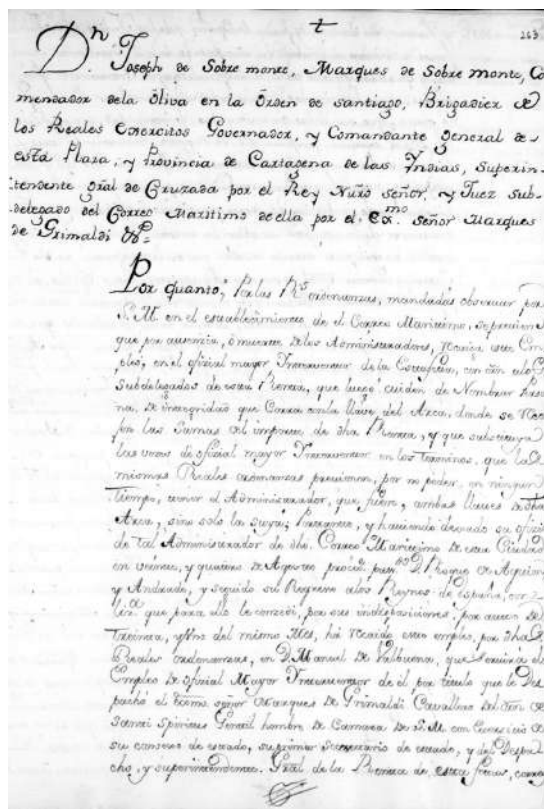 263
Dn. Joseph de Sobre monte, Marques de Sobre monte, Co
mendador dela Oliva en la Orden de santiago, Brigadier de
los Reales Exercitos Governador, y Comandante General de
esta Plaza, y Provincia de Cartagena de las Yndias, Superin
tendente gral de Cruzada por el Rey Nuro señor, y Juez sub-
delegado del Correo Maritimo de ella por el Exmo. señor Marques
de Grimaldi &a.
Por quanto, Por las Rs. ordenanzas, mandadas observar por
S. M. en el establecimiento de el Correo Maritimo, se previene
que por ausencia, ò muerte de los Administradores, recaiga este Em
pleo, en el oficial mayor Interventor de la Estafeta, con
subdelegados de esta Renta, que luego cuiden de Nombrar Perso
na, de integridad que Corra con la llave del Arca, donde se
jen las Sumas del importe de dha Renta, y que substituya
las vezes de oficial mayor Interventor en los terminos, que las
mismas Reales ordenanzas previenen, por no poder, en ningun
tiempo, tener el Administrador, que fuere, ambas llaves de dha
Arca, sino solo la suya; Portanto, y haviendo dexado su oficio
de tal Administrador de dho. Correo Maritimo de esta Ciudad
en veinte, y quatro de Agosto D. Roque de
y Andrade, y seguido su Regreso a los Reynos de España, con
licencia que para ello le concedi, por sus indisposiciones, por auto de
treinta, y Uno del mismo Mes, há recaido este empleo, por dhas
Reales ordenanzas, en D. Manuel de Valbuena, que servia el
Empleo de oficial Mayor Interventor de el por titulo que le Des
pachó el Exmo. señor Marques de Grimaldi Cavallero del de
Santi spiritus Gentil hombre de Camara de S. M. con Exercicio de
su consejo de estado, su primer secretario de estado, y del Despa
cho, y superintendente Gral de la Renta de